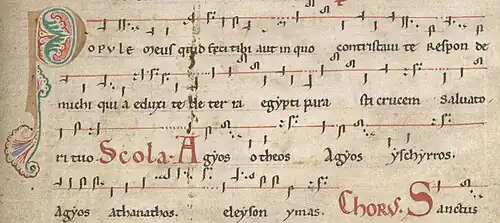 Popule meus quid feci tibi aut in quo contristavi te Responde
michi quia eduxi te de terra egypti parasti crucem salvato
ri tuo Scola. Agyos otheos Agyos yschyrros.
agyos athanathos. eleyson ymas. Chorus. Sanctus